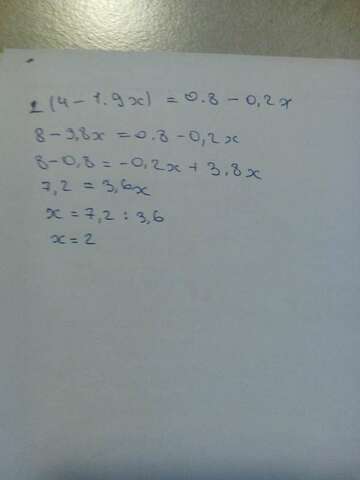 2(4-1.9x) = 0.8-0,2x
8-3,8x = 0.8-0,2x
8-0,8 = -0,2x + 3,8x
7,2 = 3,6x
x = 7,2 : 3,6
x = 2